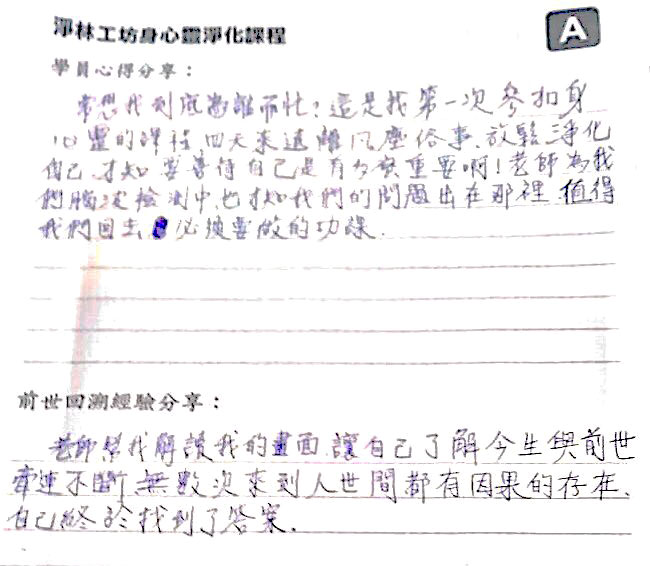 淨林工坊身心靈淨化課程
A
學員心得分享：
常想我到底為誰而忙？這是我第一次參加身
心靈的課程，四天來遠離凡塵俗事、放鬆淨化
自己，才知要善待自己是有多麼重要啊！老師為我
們腦波檢測中也才知我們的問題出在那裡，值得
我們回去必須要做的功課．
前世回溯經驗分享：
老師幫我解讀我的畫面，讓自己了解今生與前世
牽連不斷，無數次來到人世間都有因果的存在、
自己終於找到了答案．